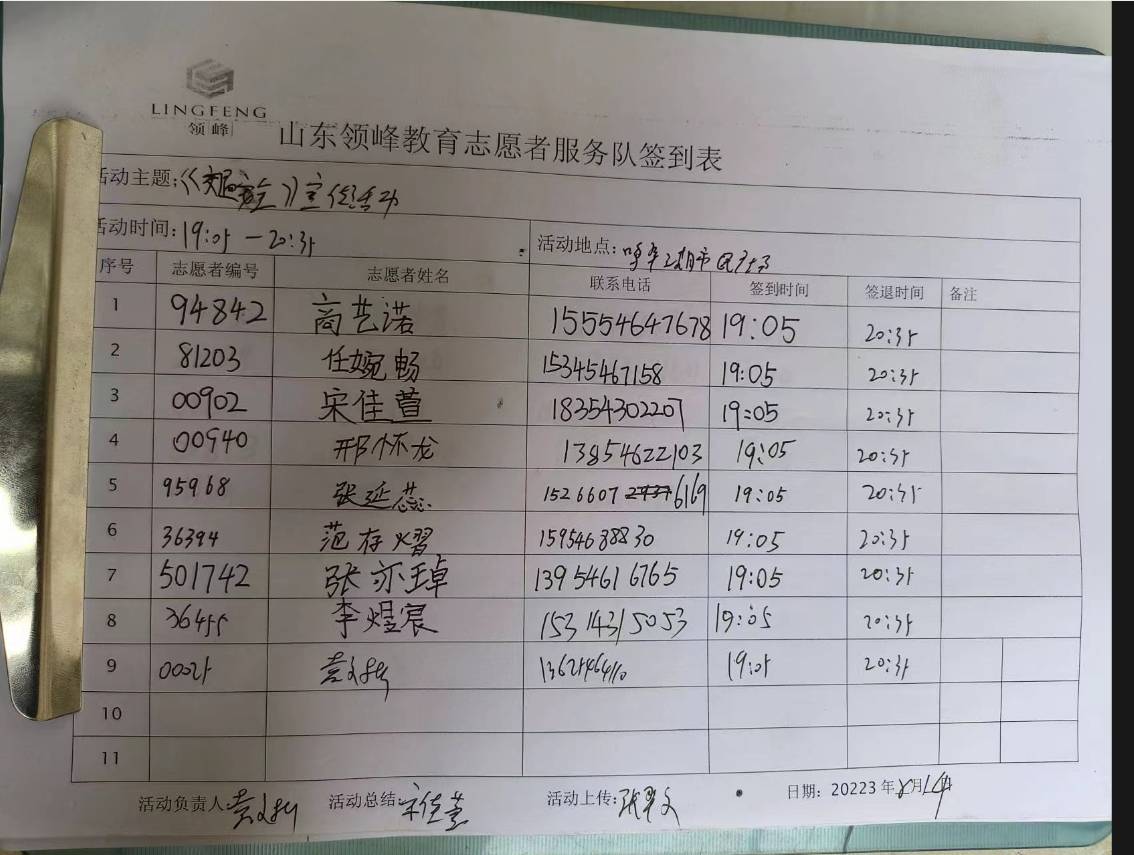 LINGFENG
领峰
山东领峰教育志愿者服务队签到表
活动主题:《交通安全》宣传活动
活动时间:19:05-20:35 活动地点:
序号 志愿者编号 志愿者姓名 联系电话 签到时间 签退时间 备注
1 94842 高艺诺 15554647678 19:05 20:35
2 81203 任婉畅 15345467158 19:05 20:35
3 00902 宋佳萱 18354302207 19:05 20:35
4 00940 邢怀龙 13854622103 19:05 20:35
5 95968 张延蕊 1526607 6169 19:05 20:35
6 36394 范存熠 15954638830 19:05 20:35
7 501742 张亦琸 13954616765 19:05 20:35
8 36455 李煜宸 15314315053 19:05 20:35
9 00025 19:05 20:35
10
11
活动负责人: 活动总结:宋佳萱 活动上传: 日期:20223年8月14